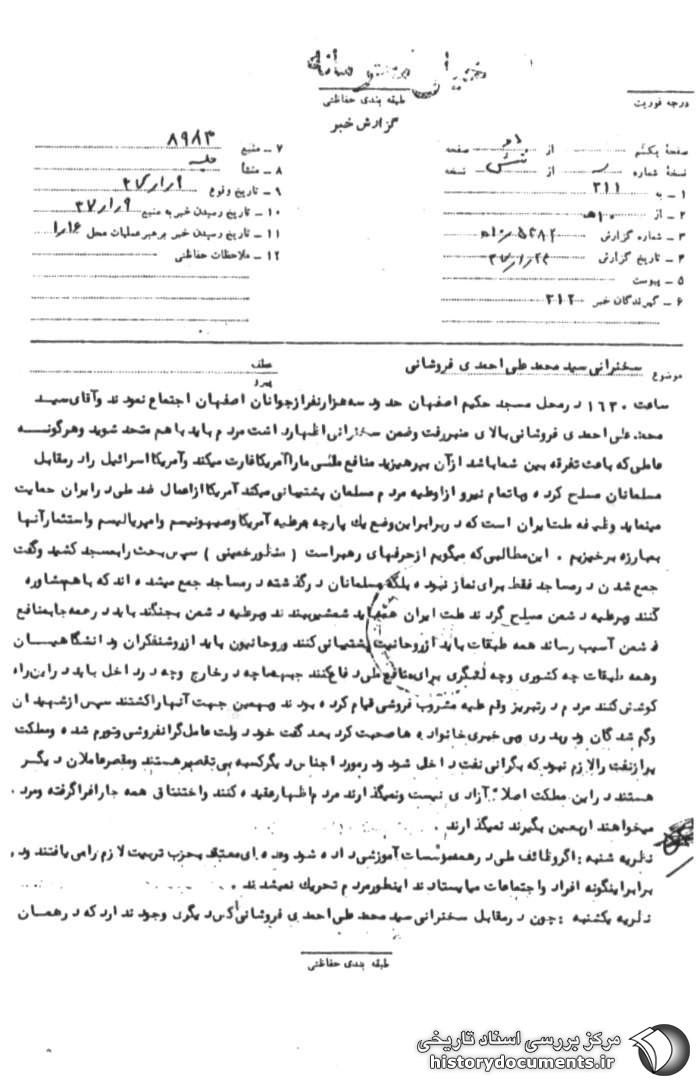 خیلی محرمانه
طبقه بندی حفاظتی
گزارش خبر
درجه فوریت
صفحه یکم از دو صفحه
نسخه شماره از شش نسخه
۱ – به ۳۱۱
۲ – از ۱۰ه
۳ – شماره گزارش
۴ – تاریخ گزارش
۵ – پیوست
۶ – گیرندگان خبر ۳۱۲
۷ – منبع ۸۹۸۳
۸ – منشأ جلسه
۹ – تاریخ وقوع ۳۷/۱/۹
۱۰ – تاریخ رسیدن خبر به منبع ۳۷/۱/۹
۱۱ – تاریخ رسیدن خبر به رهبر عملیات محل ۱۶/۱
۱۲ – ملاحظات حفاظتی
موضوع سخنرانی سید محمد علی احمدی فروشانی
عطف
پیرو
ساعت ۱۶۳۰ در محل مسجد حکیم اصفهان حدود سه هزار نفر از جوانان اصفهان اجتماع نمودند و آقای سید
محمد علی احمدی فروشانی بالای منبر رفت و ضمن سخنرانی اظهار داشت مردم باید با هم متحد شوید و هرگونه
عاملی که باعث تفرقه بین شما باشد از آن بپرهیزید منافع ملی ما را آمریکا غارت میکند و آمریکا اسرائیل را در مقابل
مسلمانان مسلح کرده و با تمام نیرو از او علیه مردم مسلمان پشتیبانی میکند آمریکا از اعمال ضد ملی در ایران حمایت
مینماید وظیفه ملت ایران است که در برابر این وضع یک پارچه بر علیه آمریکا و صهیونیسم و امپریالیسم و استثمار آنها
بمبارزه برخیزیم . این مطالبی که میگویم از حرفهای رهبر است ( منظور خمینی ) سپس بحث را بمسجد کشید و گفت
جمع شدن در مساجد فقط برای نماز نبوده بلکه مسلمانان در گذشته در مساجد جمع میشده اند که با هم مشاوره
کنند و بر علیه دشمن مسلح گردند ملت ایران هم باید شمشیر ببندند و بر علیه دشمن بجنگند باید در همه جا بمنافع
دشمن آسیب رساند همه طبقات باید از روحانیت پشتیبانی کنند و روحانیون باید از روشنفکران و دانشگاهیان
و همه طبقات چه کشوری و چه لشگری برای منافع ملی دفاع کنند جبهه ها چه در خارج و چه در داخل باید در این راه
کوشش کنند مردم در تبریز و قم علیه مشروب فروشی قیام کرده بودند و بهمین جهت آنها را کشتند سپس از شهیدان
و گم شدگان و دربدری و بی خبری خانواده ها صحبت کرد بعد گفت خود دولت عامل گرانفروشی و تورم شده و مملکت
پر از نفت را لازم نبود که بگرانی نفت داخلی شود و در مورد اجناس دیگر کسبه بی تقصیر هستند و مقصر عاملان دیگر
هستند در این مملکت اصلا" آزادی نیست و نمیگذارند مردم اظهار عقیده کنند و اختناق همه جا را فرا گرفته و مردم
میخواهند اربعین بگیرند نمیگذارند .
نظریه شنبه : اگر وظائف ملی در همه مؤسسات آموزشی داده شود و عده ای معتقد بحزب تربیت لازم را می یافتند و در
برابر اینگونه افراد و اجتماعات میایستادند اینطور مردم تحریک نمیشدند .
نظریه یکشنبه : چون در مقابل سخنرانی سید محمد علی احمدی فروشانی کس دیگری وجود ندارد که در همان
طبقه بندی حفاظتی
مرکز بررسی اسناد تاریخی
historydocuments.ir